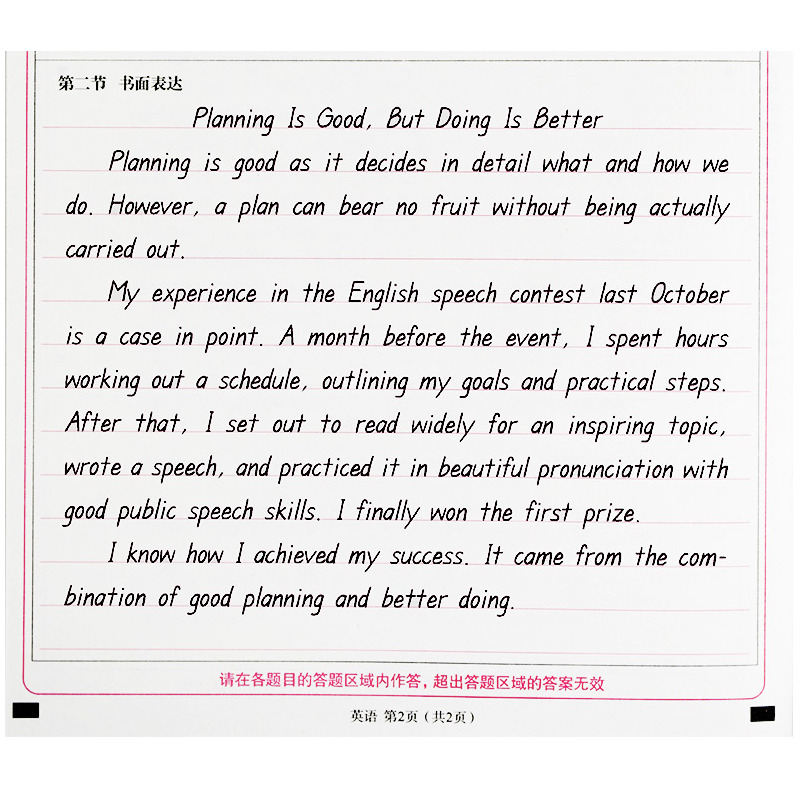 第二节 书面表达
Planning Is Good, But Doing Is Better
Planning is good as it decides in detail what and how we
do. However, a plan can bear no fruit without being actually
carried out.
My experience in the English speech contest last October
is a case in point. A month before the event, I spent hours
working out a schedule, outlining my goals and practical steps.
After that, I set out to read widely for an inspiring topic,
wrote a speech, and practiced it in beautiful pronunciation with
good public speech skills. I finally won the first prize.
I know how I achieved my success. It came from the com-
bination of good planning and better doing.
请在各题目的答题区域内作答，超出答题区域的答案无效
英语 第2页（共2页）